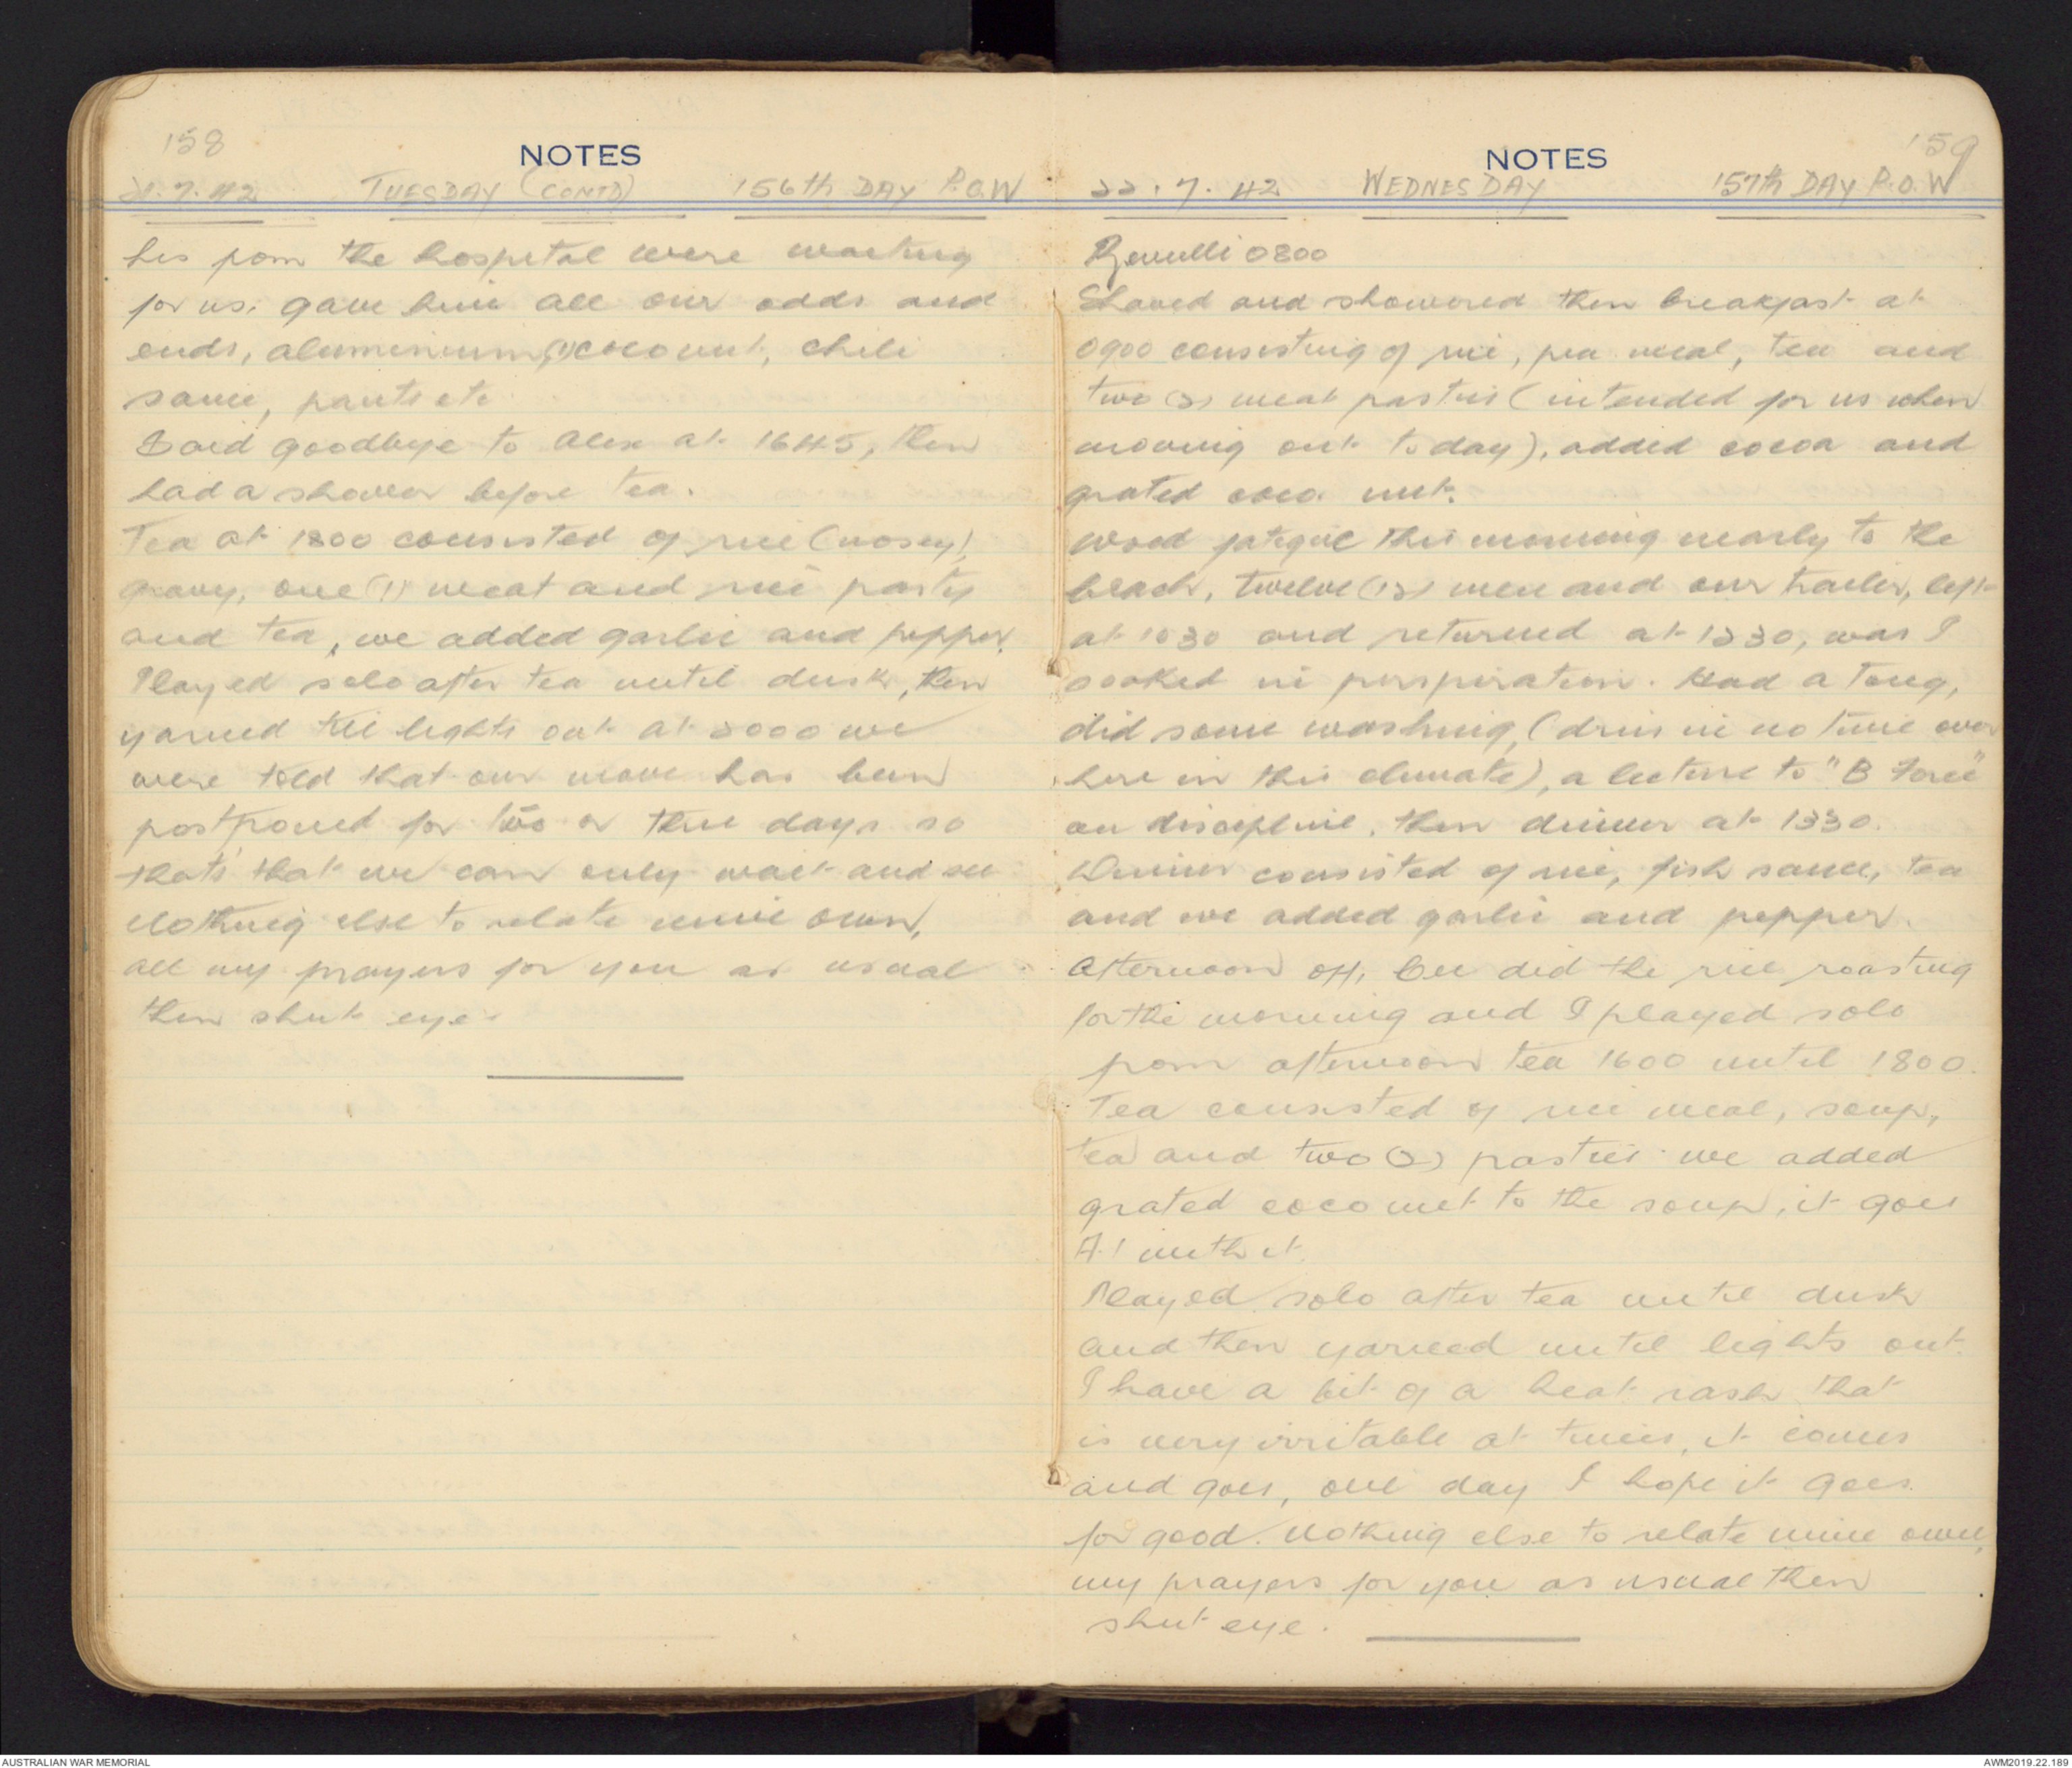 158
NOTES
21.7.42 TUESDAY (CONTD) 156th DAY P.O.W
his from the hospital were waiting
for us. gave him all our odds and
ends, aluminium, (1) coconut, chili
sauce, pants etc
Said goodbye to Alex at 1645, then
had a shower before tea.
Tea at 1800 consisted of rice (nosey),
gravy, one (1) meat and rice pasty
and tea, we added garlic and pepper.
Played solo after tea until dusk, then
yarned till lights out at 2000 we
were told that our move has been
postponed for two or three days so
that's that we can only wait and see
Nothing else to relate mine own,
all my prayers for you as usual
then shut eye.
159
NOTES
22.7.42 WEDNESDAY 157th DAY P.O.W
Reveilli 0800
Shaved and showered then breakfast at
0900 consisting of rice, pea meal, tea and
two (2) meat pasties (intended for us when
moving out today), added cocoa and
grated coco nut.
Wood fatigue this morning nearly to the
beach, twelve (12) men and our trailer, left
at 1030 and returned at 1230, was I
soaked in perspiration. Had a tong,
did some washing, (dries in no time over
here in this climate), a lecture to "B Force"
on discipline, then dinner at 1330.
Dinner consisted of rice, fish sauce, tea
and we added garlic and pepper.
Afternoon off, did the rice roasting
for the morning and I played solo
from afternoon tea 1600 until 1800.
Tea consisted of rice meal, soup,
tea and two (2) pasties we added
grated coconut to the soup, it goes
A.1 with it.
Played solo after tea until dusk
and then yarned until lights out.
I have a bit of a heat rash that
is very irritable at times, it comes
and goes, one day I hope it goes
for good. Nothing else to relate mine own,
my prayers for you as usual then
shut eye.
AUSTRALIAN WAR MEMORIAL
AWM2019.22.189